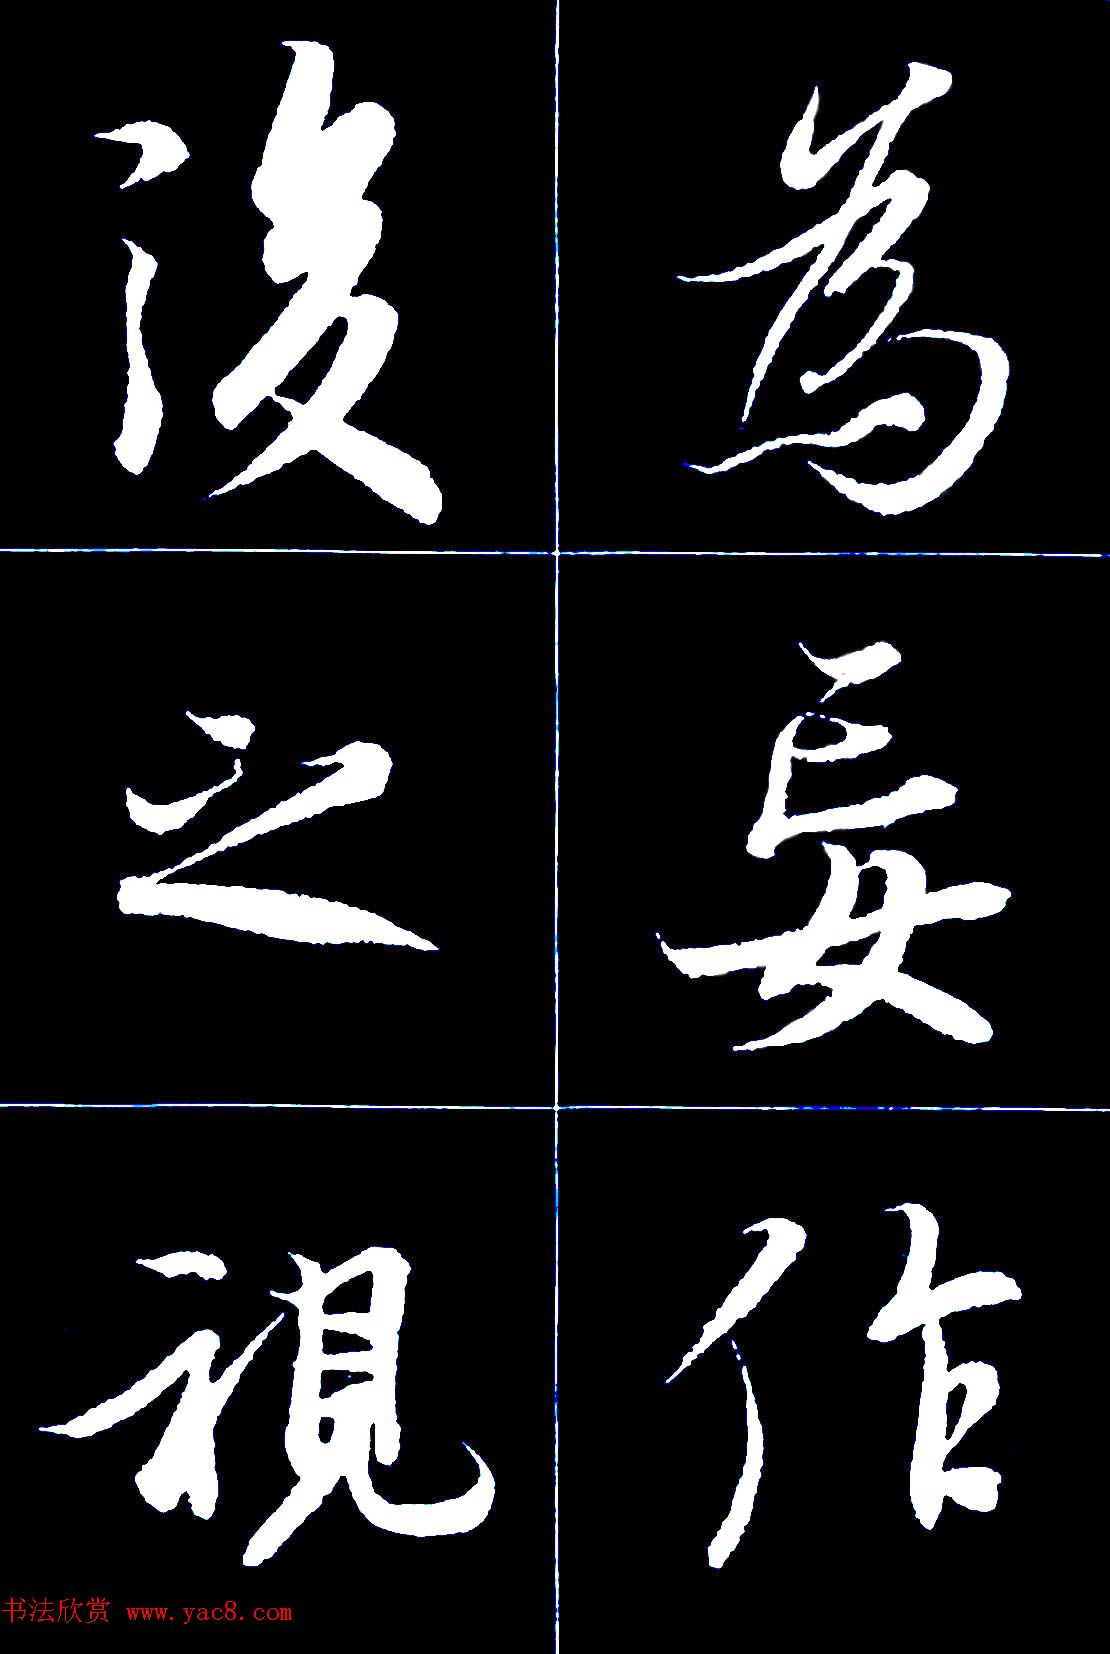 為妄作
後之視
书法欣赏 www.yac8.com